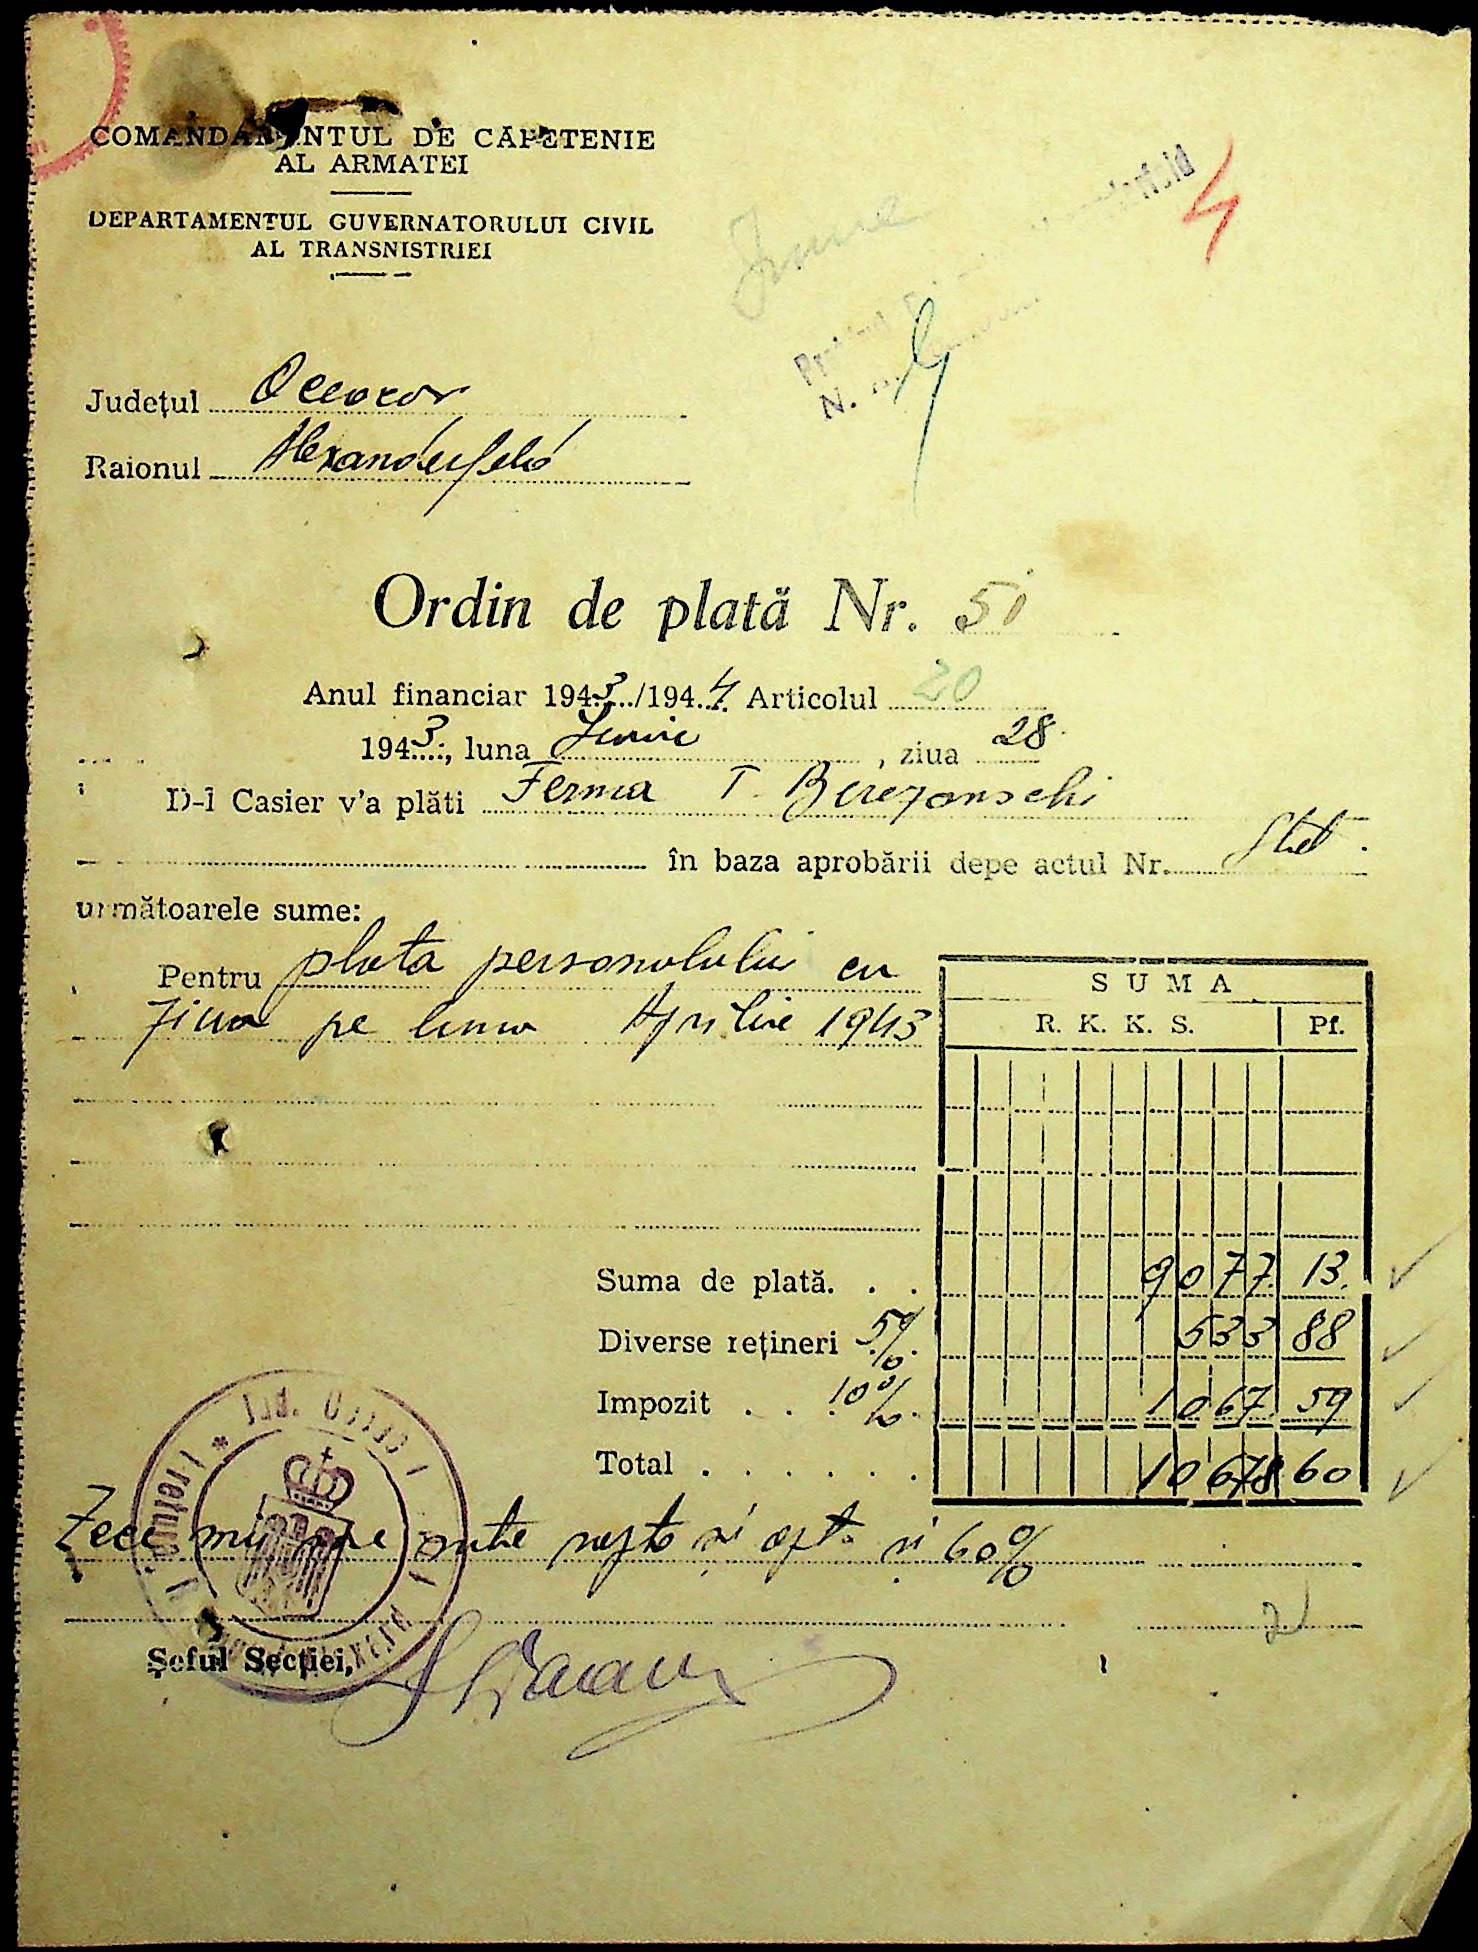 COMANDAMENTUL DE CĂPETENIE
AL ARMATEI
DEPARTAMENTUL GUVERNATORULUI CIVIL
AL TRANSNISTRIEI
Junie
4
N.
Județul Oceacov
Raionul Alexanderfeld
Ordin de plată Nr. 51
Anul financiar 1943/1944 Articolul 20
1943, luna Junie, ziua 28
D-l Casier v'a plăti Ferma T. Berezanschi
în baza aprobării depe actul Nr. Stat.
următoarele sume:
Pentru plata personalului cu
ziua pe luna Aprilie 1943
SUMA
R. K. K. S. Pf.
Suma de plată. . . 9077. 13.
Diverse rețineri 5% 533 88
Impozit . . 10% 1067. 59
Total . . . . . . 10678 60
Zece mii șase sute șapte și opt și 60%
Jud.
Șeful Secției,